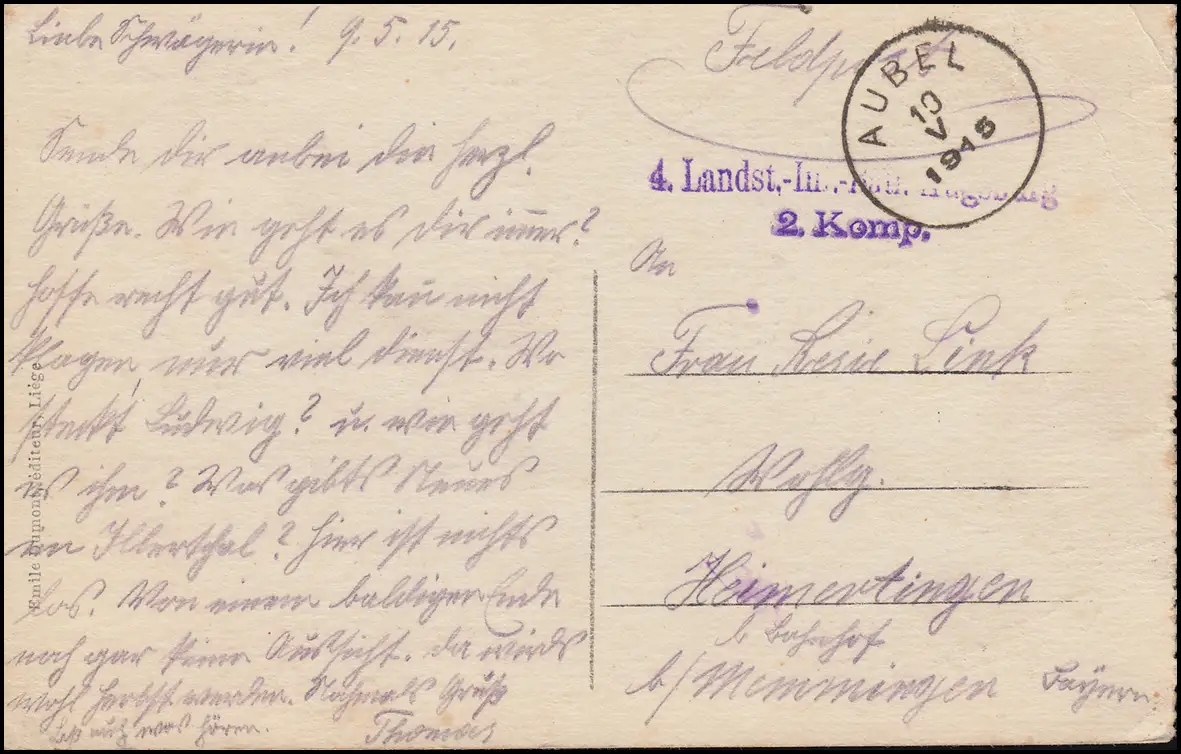 Liebe Schwägerin! 9.5.15.
Sende dir anbei die herzl.
Grüße. Wie geht es dir immer?
hoffe recht gut. Ich kan nicht
klagen nur viel dienst. Wo
steckt Ludwig? u. wie geht
es ihm? Was gibts Neues
im Illerthal? hier ist nichts
los. Von einem baldigen Ende
noch gar keine Aussicht. da wirds
wohl herbst werden. Nochmals Gruß
Laß auch was hören. Thomas
Emile Dumont, éditeur, Liége
Feldpost
AUBEL
10
V
1915
4. Landst.-Inf.-Batl. Augsburg
2. Komp.
An
Frau Link
Wohlg.
Heimertingen
b. Bahnhof
b/Memmingen Bayern